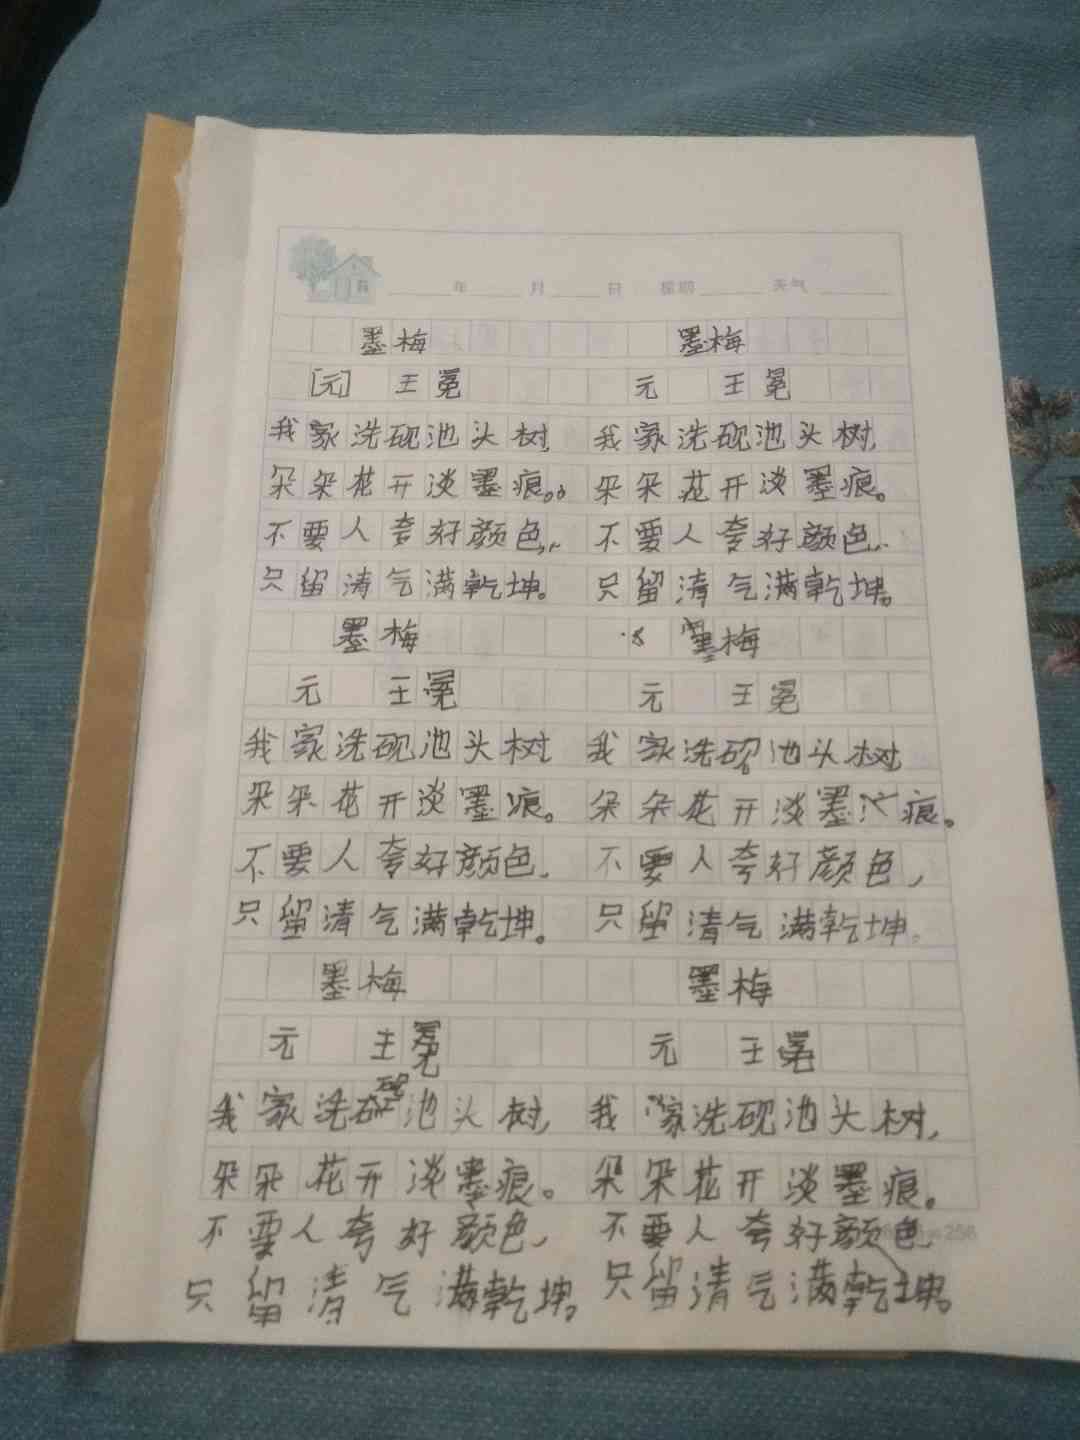 年 月 日 星期 天气
墨梅 墨梅
[元] 王冕 元 王冕
我家洗砚池头树, 我家洗砚池头树,
朵朵花开淡墨痕。 朵朵花开淡墨痕。
不要人夸好颜色, 不要人夸好颜色,
只留清气满乾坤。 只留清气满乾坤。
墨梅 墨梅
元 王冕 元 王冕
我家洗砚池头树 我家洗砚池头树
朵朵花开淡墨痕。 朵朵花开淡墨痕。
不要人夸好颜色, 不要人夸好颜色,
只留清气满乾坤。 只留清气满乾坤。
墨梅 墨梅
元 王冕 元 王冕
我家洗砚池头树, 我家洗砚池头树,
朵朵花开淡墨痕。 朵朵花开淡墨痕。
不要人夸好颜色, 不要人夸好颜色,
只留清气满乾坤。 只留清气满乾坤。